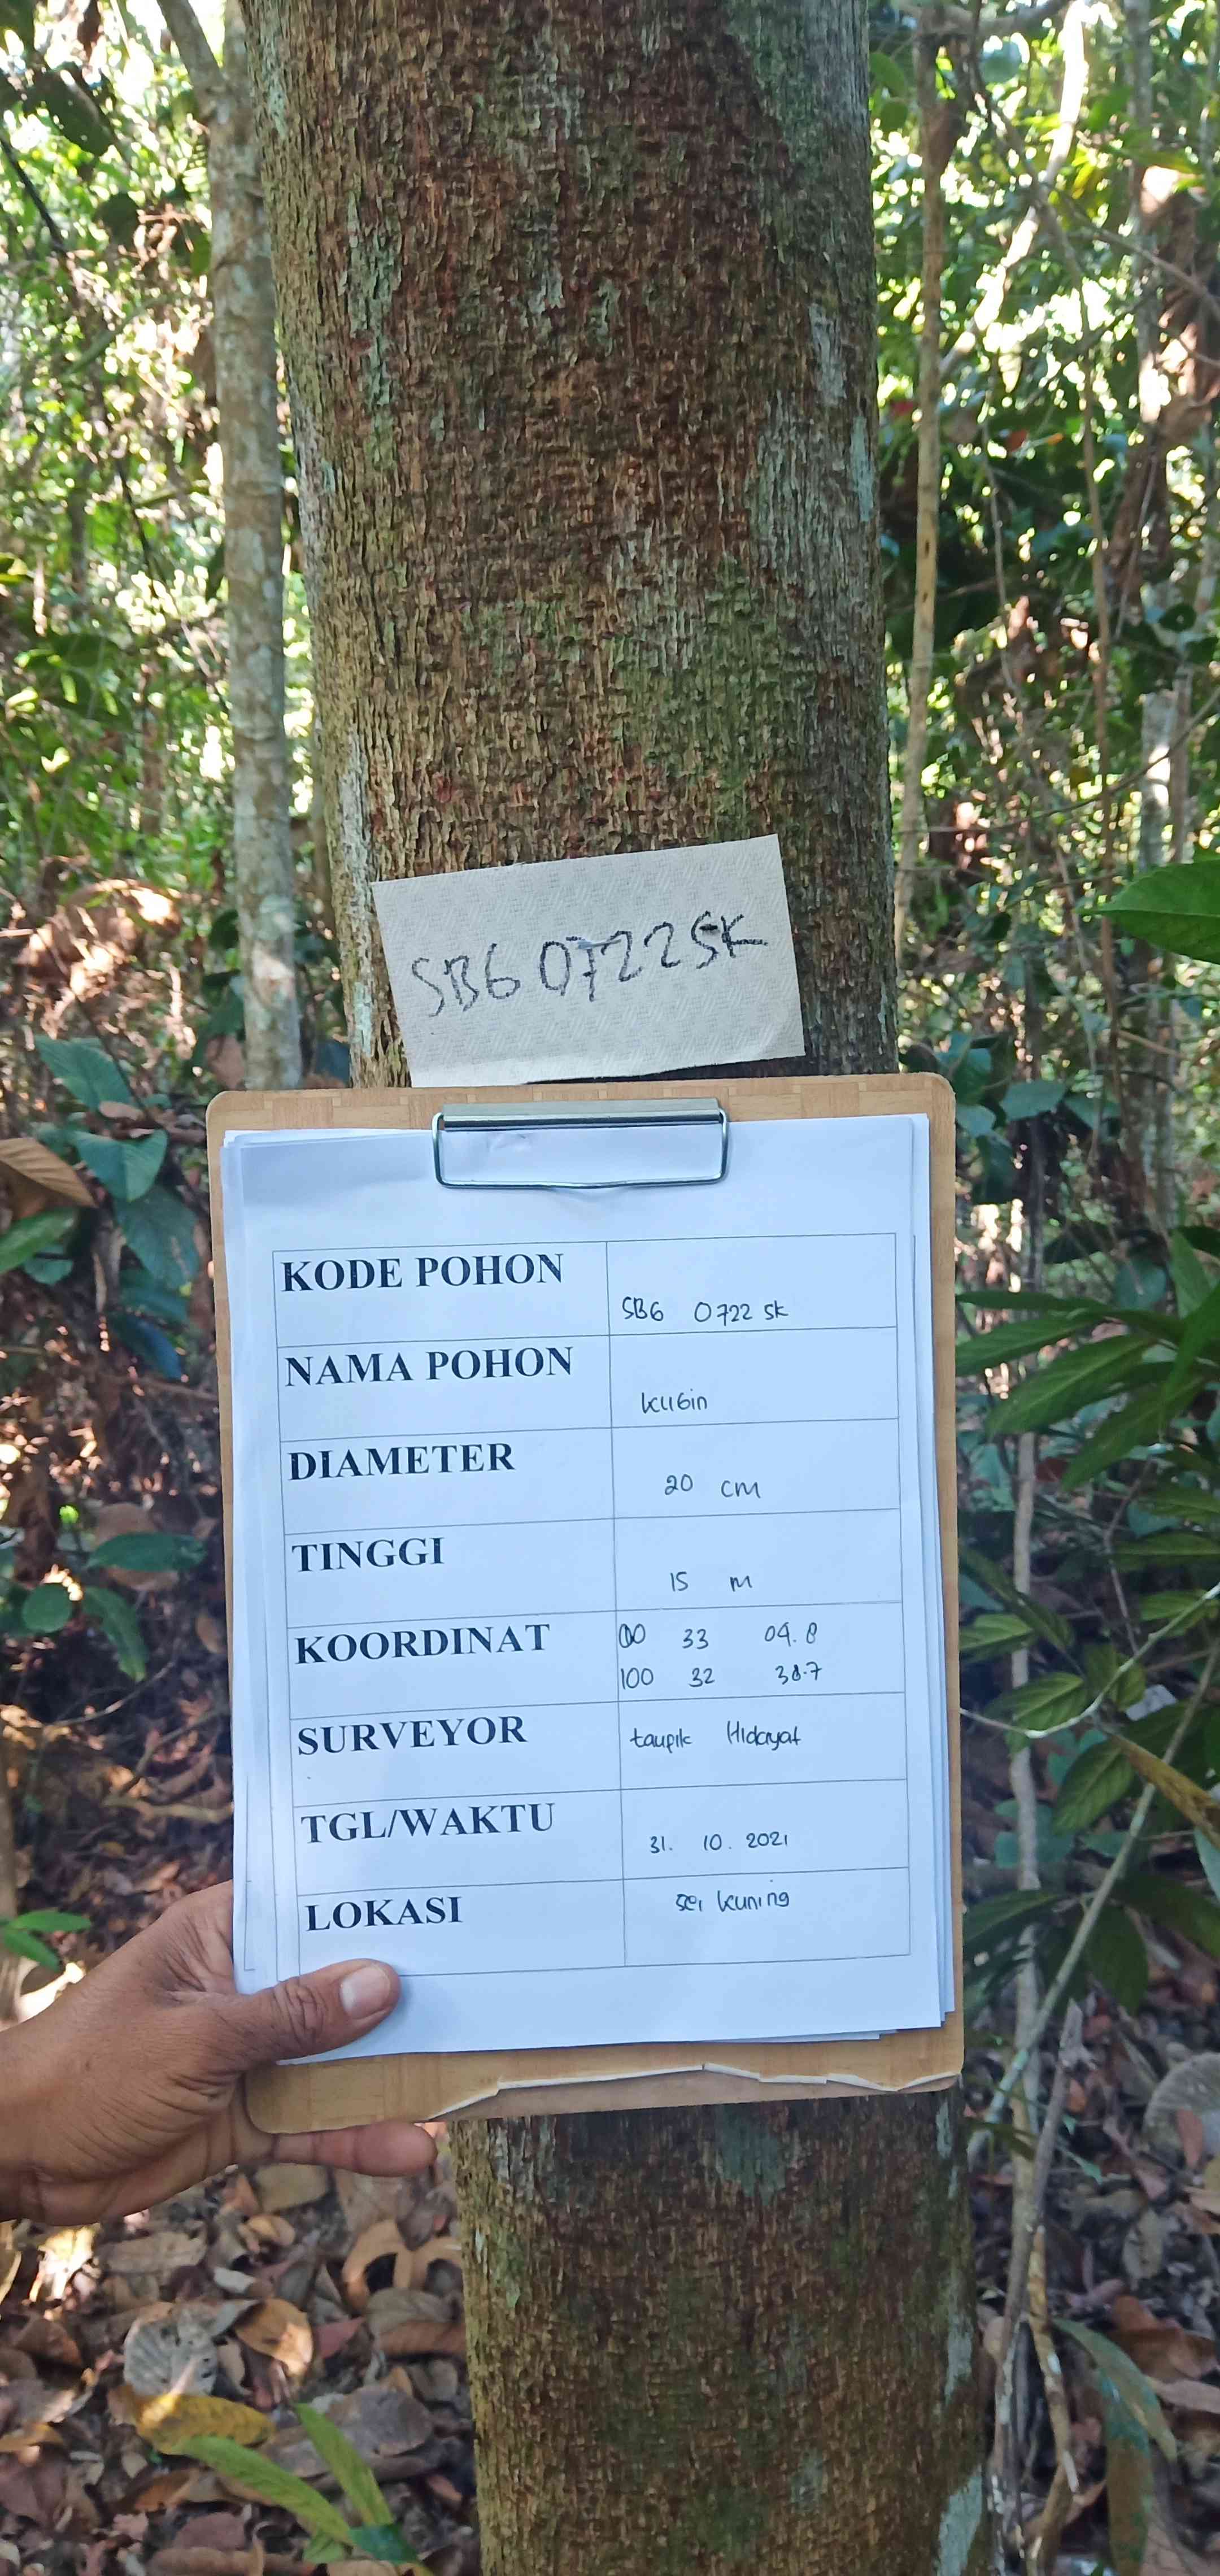 SB6 0722 SK
KODE POHON
SB6 0722 SK
NAMA POHON
kubin
DIAMETER
20 cm
TINGGI
15 m
KOORDINAT
00 33 04.8
100 32 38.7
SURVEYOR
taupik Hidayat
TGL/WAKTU
31. 10. 2021
LOKASI
sei kuning